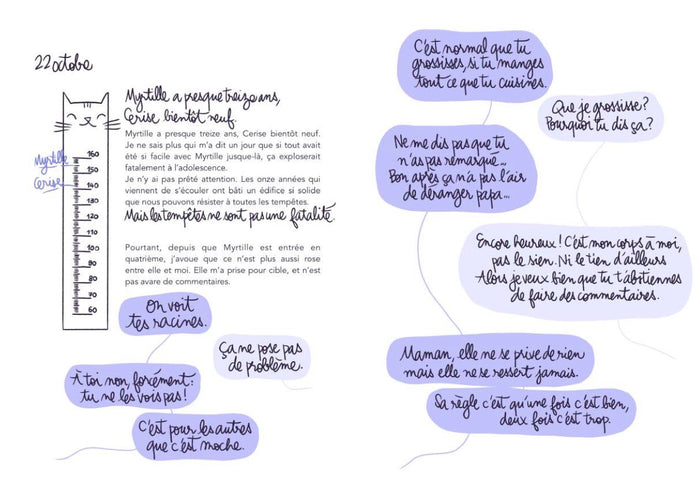 22 octobre
Myrtille a presque treize ans,
Cerise bientôt neuf.
Myrtille a presque treize ans, Cerise bientôt neuf.
Je ne sais plus qui m'a dit un jour que si tout avait
été si facile avec Myrtille jusque-là, ça exploserait
fatalement à l'adolescence.
Je n'y ai pas prêté attention. Les onze années qui
viennent de s'écouler ont bâti un édifice si solide
que nous pouvons résister à toutes les tempêtes.
Mais les tempêtes ne sont pas une fatalité.
Pourtant, depuis que Myrtille est entrée en
quatrième, j'avoue que ce n'est plus aussi rose
entre elle et moi. Elle m'a prise pour cible, et n'est
pas avare de commentaires.
Myrtille
Cerise
160
150
140
130
120
110
100
90
80
70
60
On voit
tes racines.
Ça ne pose pas
de problème.
À toi non, forcément :
tu ne les vois pas !
C'est pour les autres
que c'est moche.
C'est normal que tu
grossisses, si tu manges
tout ce que tu cuisines.
Que je grossisse ?
Pourquoi tu dis ça ?
Ne me dis pas que tu
n'as pas remarqué...
Bon après ça n'a pas l'air
de déranger papa...
Encore heureux ! C'est mon corps à moi,
pas le sien. Ni le tien d'ailleurs
Alors je veux bien que tu t'abstiennes
de faire des commentaires.
Maman, elle ne se prive de rien
mais elle ne se ressert jamais.
Sa règle c'est qu'une fois c'est bien,
deux fois c'est trop.